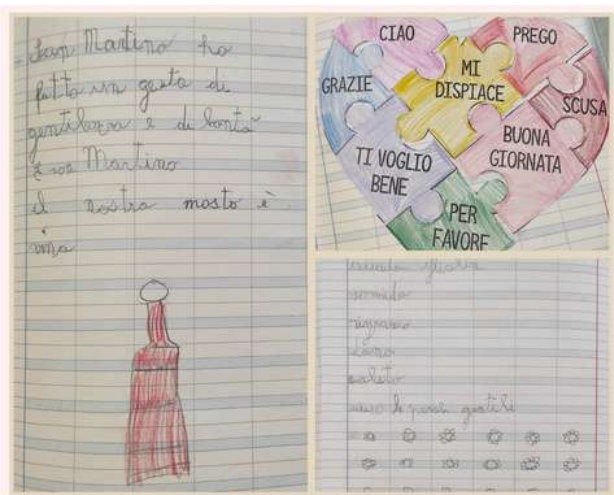 San Martino ha
fatto un gesto di
gentilezza e di bontà
San Martino
il nostro mosto è
vino
CIAO
PREGO
GRAZIE
MI
DISPIACE
SCUSA
BUONA
GIORNATA
TI VOGLIO
BENE
PER
FAVORE
sorrido
ringrazio
saluto
uso le parole gentili